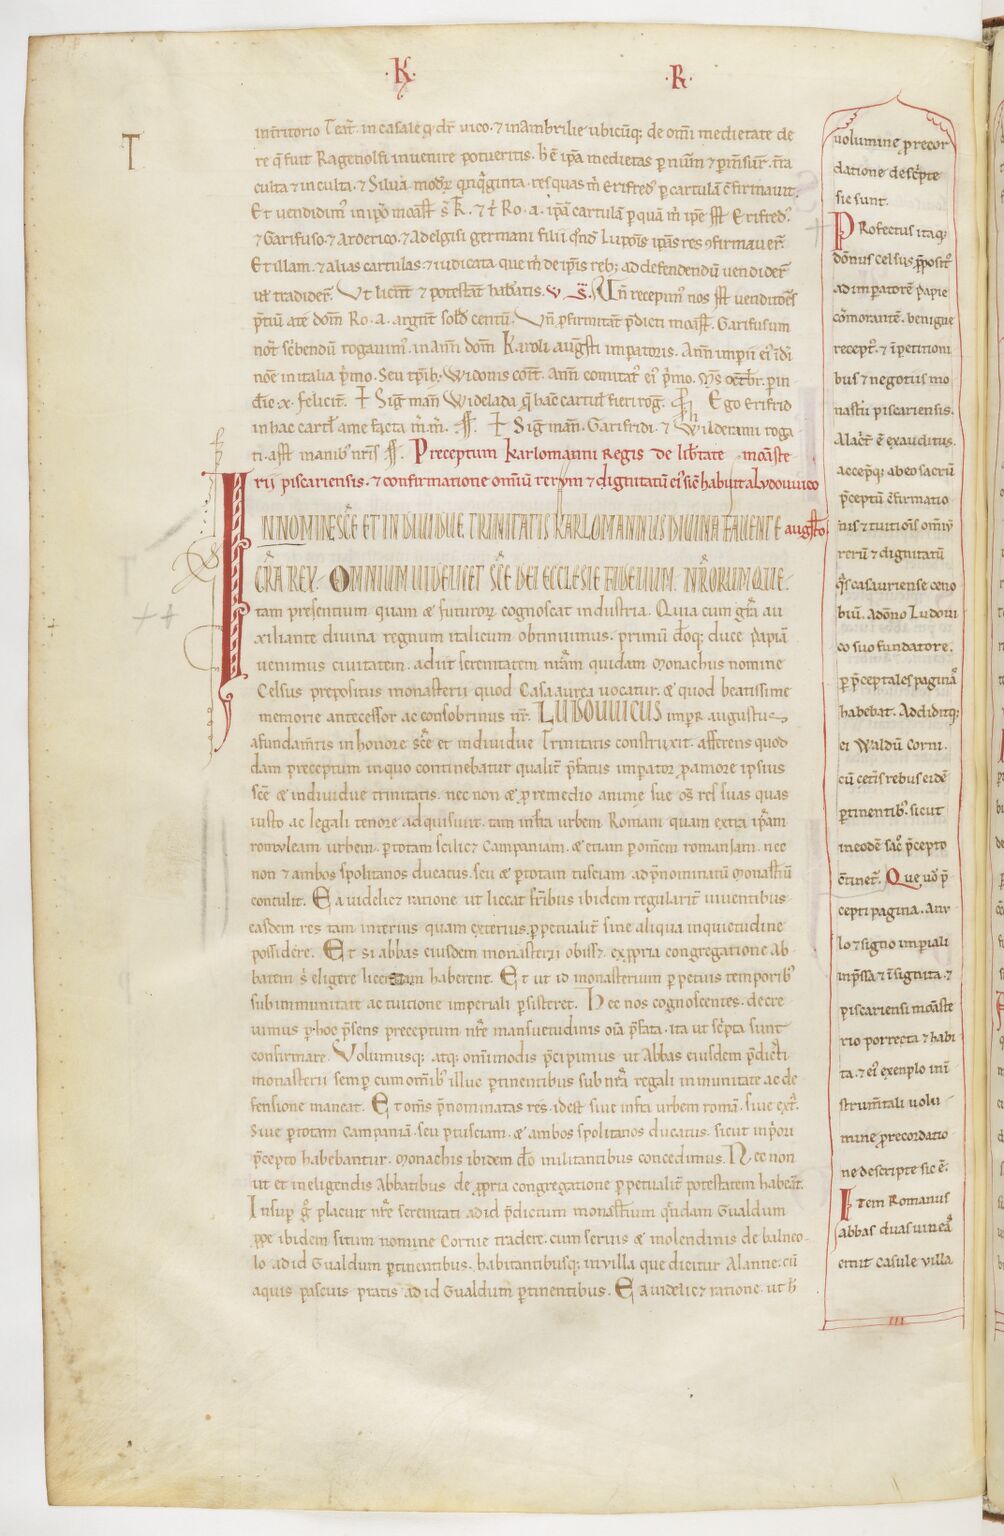 ·K· ·R·
T
in territorio Teat̄. in casale q̄ dr̄ uico. ⁊ in ambrilie ubicūq; de om̄i medietate de
re q̄ fuit Ragenolfi inuenire potueritis. ipa medietas
culta ⁊ inculta. ⁊ Silua res quas m̄ Erifred' per cartulā c̄firmauit.
Et vendidim' in ip̄o moāst̄ s̄ K. ⁊ t̄ Ro. a. ip̄ā cartulā p quā m̄ ip̄e Erifred'
⁊ Garifuso. ⁊ Arderico. ⁊ Adelgisi germani filii ip̄as res ɔfirmauer̄.
Et illam. ⁊ alias cartulas. ⁊ iudicata que m̄ de ip̄is reb; ad defendendū uendider̄
ut̄ tradider̄. Ut licent̄ ⁊ potestat̄ habeatis. Un̄ recepim' nos venditoēs
p̄tiū a te dom̄ Ro. a. argent̄ solid̄ centū. Un̄ p firmitat̄ p̄dicti moāst̄. Garifusum
not̄ sc̄bendū rogauim'. in anni dom̄ Karoli augusti imperatoris. Ann̄ imperii ei' īdi
nōe in italia p̄mo. Seu tp̄ib; Widonis com̄t. Ann̄ comitat' ei' p̄mo. p in
die .x. felicit̄. ☩ Sig̅ man̄ Widelada q̄ hāc cartul̄ fieri rog̅. Ego Erifrid
in hac cartł a me facta m̄. m̄. ☩ Sig̅ man̄. Garifridi. ⁊ Wilderami roga
ti. manib' nr̄is Preceptum Karlomanni Regis de lib̄tate moāste
rii piscariensis. ⁊ confirmatione omiū rerum ⁊ dignitatū ei' sic̄ habuit a Lodouuico
IN NOMINE SC̄E ET INDIVIDUE TRINITATIS KARLOMANNUS DIVINA FAVENTE augusto
GR̄A REX. OMNIUM VIDELICET SC̄E DEI ECCLESIE FIDELIUM. NR̄ORUMQUE
tam presentium quam & futuror̄ cognoscat industria. Quia cum gr̄a au
xiliante diuina regnum italicum obtinuimus. primū dōq; duce papiā
uenimus ciuitatem. adiit serenitatem nr̄am quidam monachus nomine
Celsus prepositus monasterii quod Casa aurea uocatur. & quod beatissime
memorie antecessor ac consobrinus nr̄. LUDOUUICUS imper augustus
a fundam̄tis in honore sc̄e et indiuidue Trinitatis construxit. afferens quod
dam preceptum in quo continebatur qualit̄ p̄fatus imp̄ator p amore ipsius
sc̄e & indiuidue trinitatis. nec non & p remedio anime sue om̄s res suas quas
iusto ac legali tenore adquisiuit. tam infra urbem Romam quam extra ip̄am
romuleam urbem. p totam scilic& Campaniam. & etiam p om̄em romaniam. nec
non ⁊ ambos spolitanos ducatus. seu & p totam tusciam ad p̄nominatū monastiū
contulit. Ea uidelic& ratione ut liceat fr̄ibus ibidem regularit̄ uiuentibus
easdem res tam interius quam exterius. p petualit̄ sine aliqua inquietudine
possidere. Et si abbas eiusdem monasterii obiss&. ex p̄pria congregatione ab
batem s̄ eligere licentiam haberent. Et ut id monasterium p petuis temporib'
sub inmunitate ac tuitione imperiali p sisteret. Hec nos cognoscentes. decre
uimus p hoc p̄sens preceptum nr̄e mansuetudinis oīa p̄fata. ita ut sc̄pta sunt
confirmare. Volumusq; atq; om̄imodis p̄cipimus ut Abbas eiusdem p̄dicti
monasterii semp cum om̄ib' illuc ptinentibus sub nr̄a regali inmunitate ac de
fensione maneat. Et om̄s p̄nominatas res. id est siue infra urbem romā. siue ext̄.
Siue p totam Campaniā. seu p tusciam. & ambos spolitanos ducatus. sicut in p̄ori
p̄cepto habebantur. monachis ibidem dō militantibus concedimus. Nec non
ut et in eligendis Abbatibus de p̄pria congregatione p petualit̄ potestatem habeat̄.
Insup ḡ placuit nr̄e serenitati ad id p̄dictum monastium q̄ndam Gualdum
p̄pe ibidem situm nomine Cornie tradere. cum seruis & molendinis de balneo
lo ad id Gualdum ptinentibus. habitantibusq; in villa que dicitur Alanne. cū
aquis pascuis pratis ad id Gualdum ptinentibus. Ea uidelic& ratione. ut h̄
uolumine p̄ recor
datione desc̄pte
sic sunt.
Profectus itaq;
dōnus celsus p̄posit'
ad imperatorē papie
cōmorantē. benigne
recept'. ⁊ ī petitioni
bus ⁊ negotiis mo
nasterii piscariensis.
Alacit̄ ē exauditus.
accepitq; ab eo sacrū
p̄ceptū c̄firmatio
nis ⁊ tuitiōis omniū
rerū ⁊ dignitatū
q̄s casauriense ceno
biū. a dōno Ludoui
co suo fundatore.
p p̄ceptales paginas
habebat. Addiditq;
ei Waldū corni.
cū cet̄is rebus eidē
ptinentib'. sicut
in eodē sac̄o p̄cepto
c̄tinet̄. Que uo p̄
cepti pagina. Anu
lo ⁊ signo imperiali
inp̄ssa ⁊ īsignita. ⁊
piscariensi moāste
rio porrecta ⁊ habi
ta. ⁊ ei' exenplo inī
strum̄tali uolu
mine p recordatio
ne descripte sic ē.
Item Romanus
abbas duas uineas
emit casule villa
III